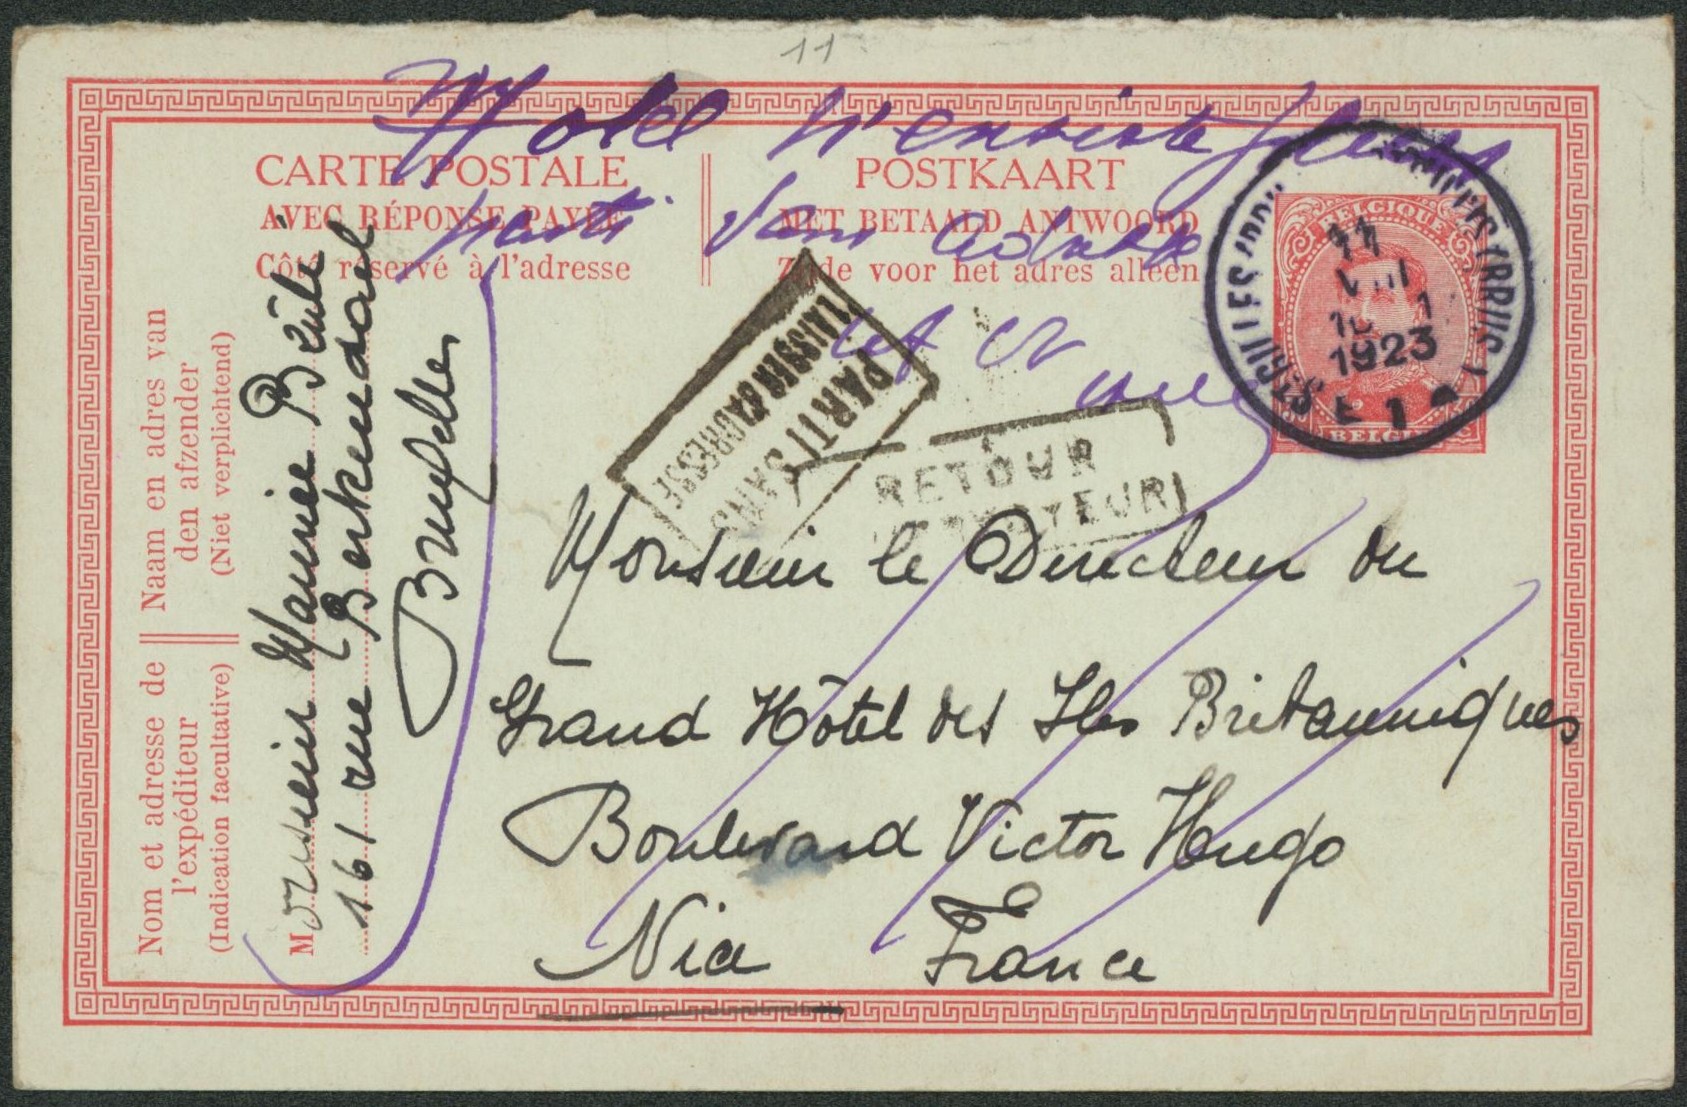 11
Hotel n'existe plus
parti sans adresse
CARTE POSTALE
AVEC RÉPONSE PAYÉE
Côté réservé à l'adresse
POSTKAART
MET BETAALD ANTWOORD
Zijde voor het adres alleen
BELGIQUE
11
VIII
1923
E 1
PARTI SANS
LAISSER d'ADRESSE
RETOUR
Monsieur le Directeur du
Grand Hôtel des Iles Britanniques
Boulevard Victor Hugo
Nice France
Nom et adresse de
l'expéditeur
(Indication facultative)
Naam en adres van
den afzender
(Niet verplichtend)
Monsieur Maurice
161 rue Berkendael
Bruxelles